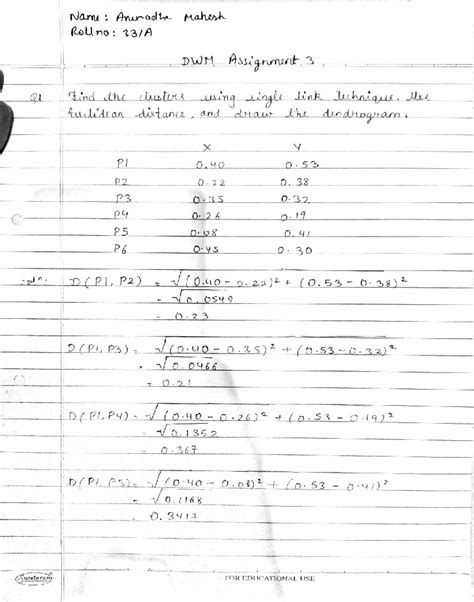 Name : Anuradha Mahesh
Roll no : 33/A
DWM Assignment 3
Q1 Find the clusters using single link technique. Use
Euclidean distance, and draw the dendrogram.
X Y
P1 0.40 0.53
P2 0.22 0.38
P3 0.35 0.32
P4 0.26 0.19
P5 0.08 0.41
P6 0.45 0.30
D(P1, P2) = √(0.40 - 0.22)² + (0.53 - 0.38)²
= √0.0549
= 0.23
D(P1, P3) = √(0.40 - 0.35)² + (0.53 - 0.32)²
= √0.0466
= 0.21
D(P1, P4) = √(0.40 - 0.26)² + (0.53 - 0.19)²
= √0.1352
= 0.367
D(P1, P5) = √(0.40 - 0.08)² + (0.53 - 0.41)²
= √0.1168
= 0.3417
Sundaram FOR EDUCATIONAL USE